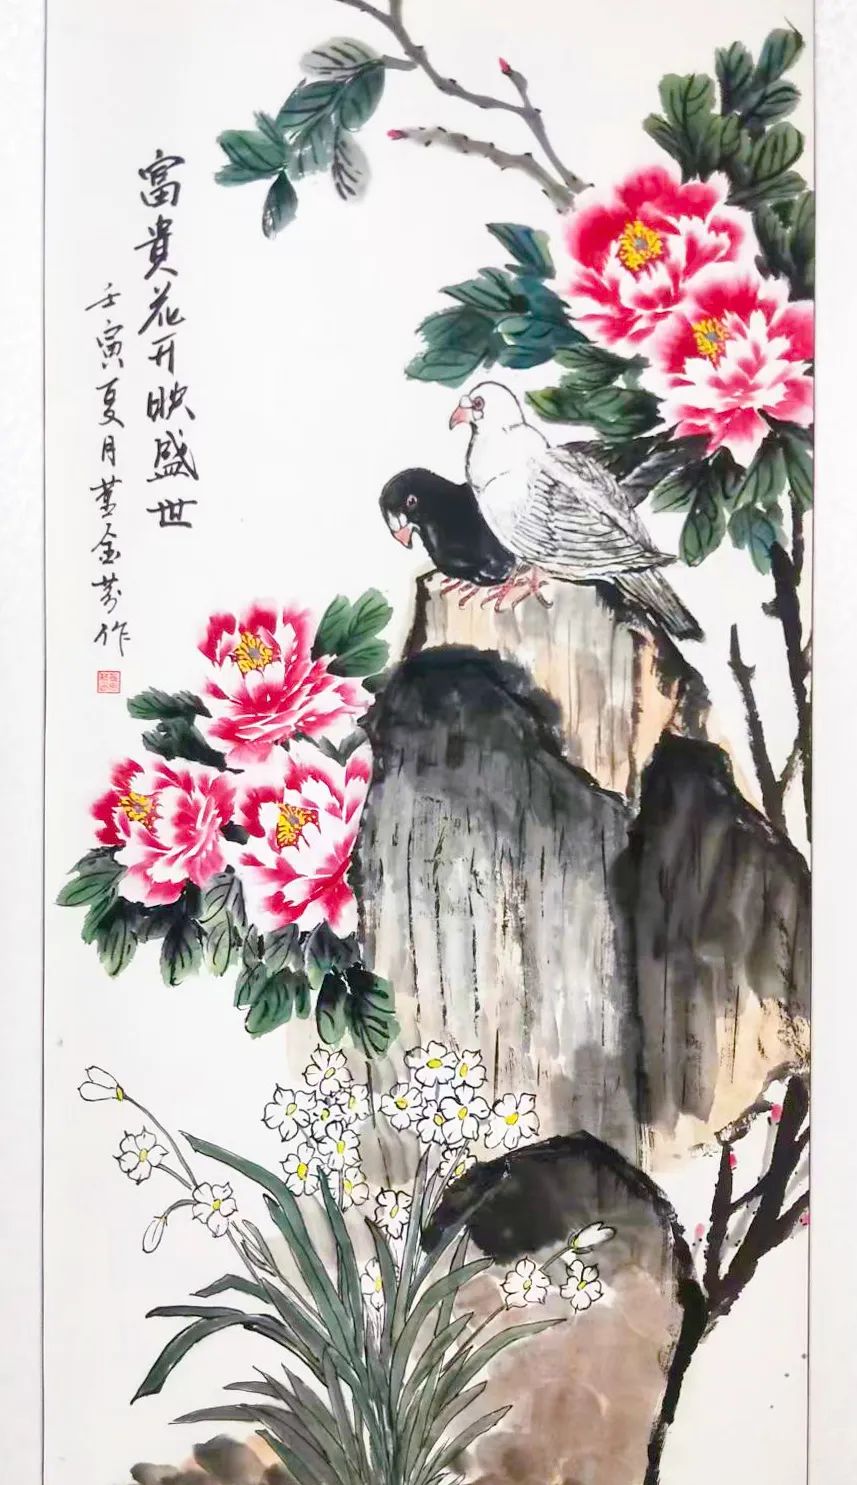 富貴花开映盛世
壬寅夏月金芳作